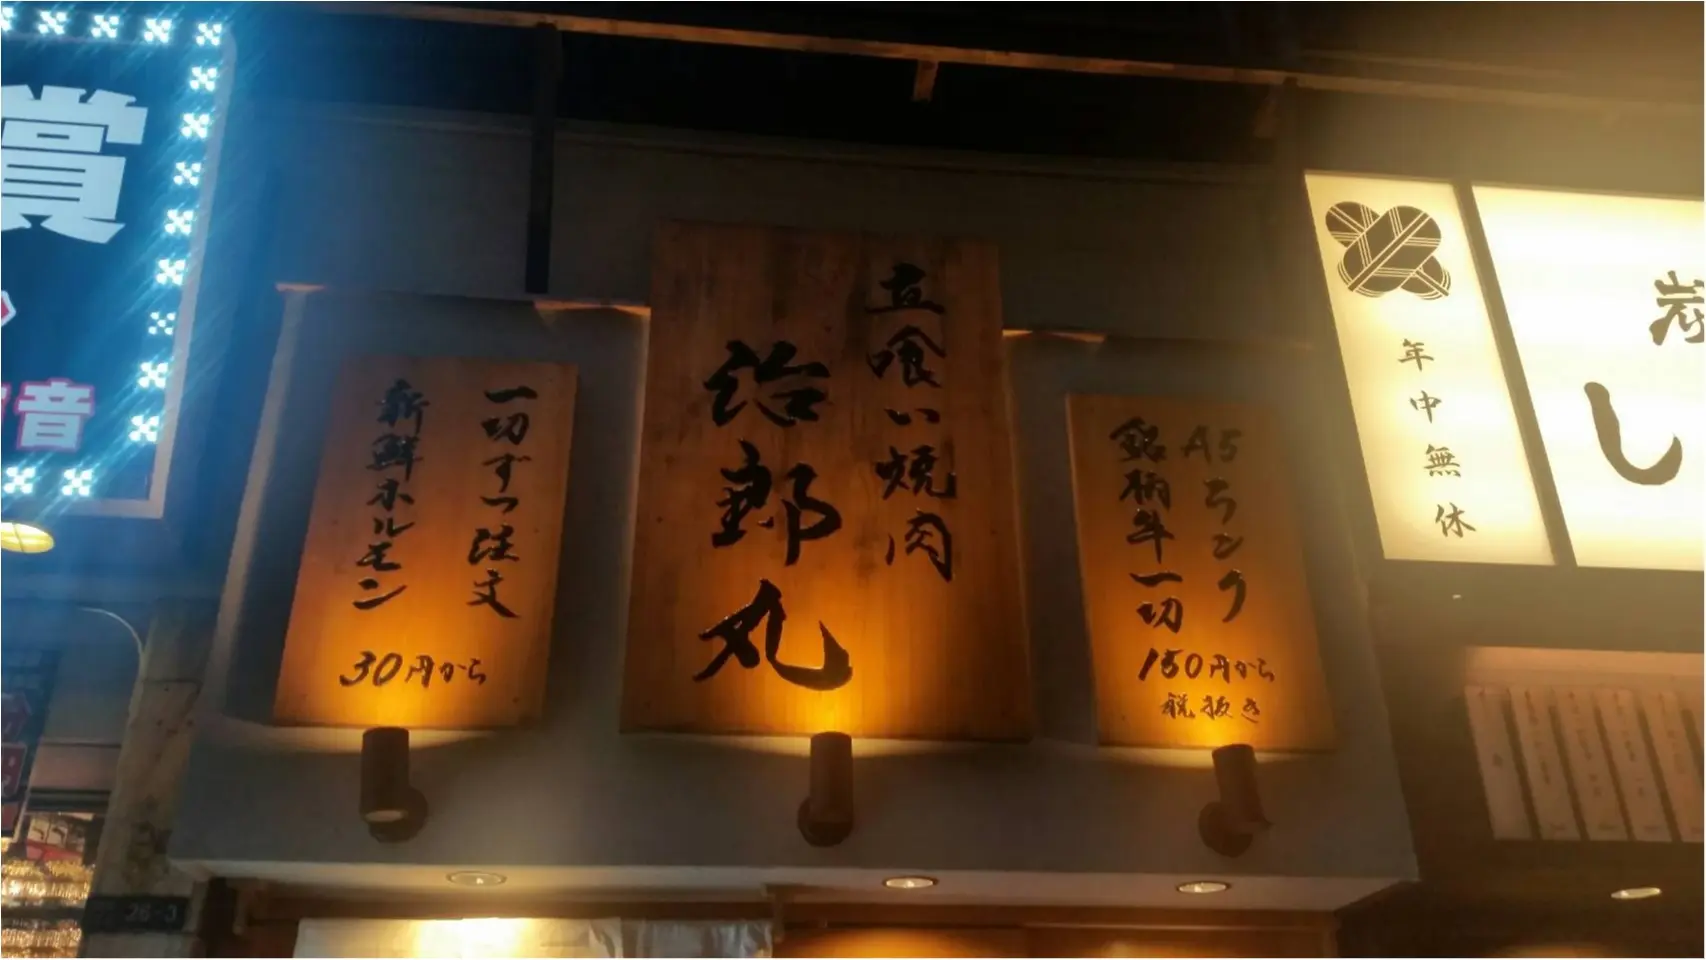 賞
音
一切ずつ注文
新鮮ホルモン
30円から
立喰い焼肉
治郎丸
A5ランク
銘柄牛一切
150円から
税抜き
年中無休
炭
し
26-3